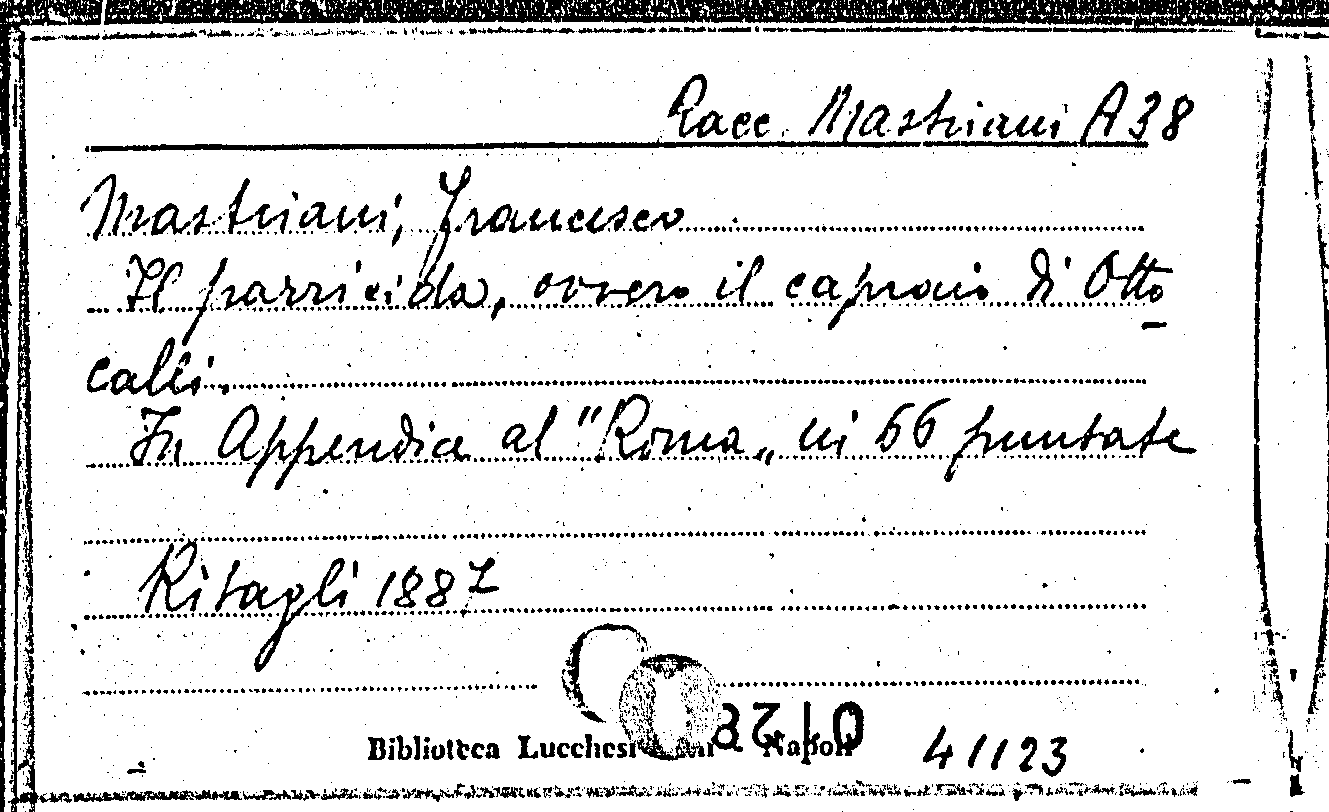 Racc. Mastriani A 38
Mastriani, Francesco
Il parricida, ovvero il capraio di Otto
calli.
In Appendice al "Roma„ in 66 puntate
Ritagli 1887
Biblioteca Lucchesi Napoli
41123